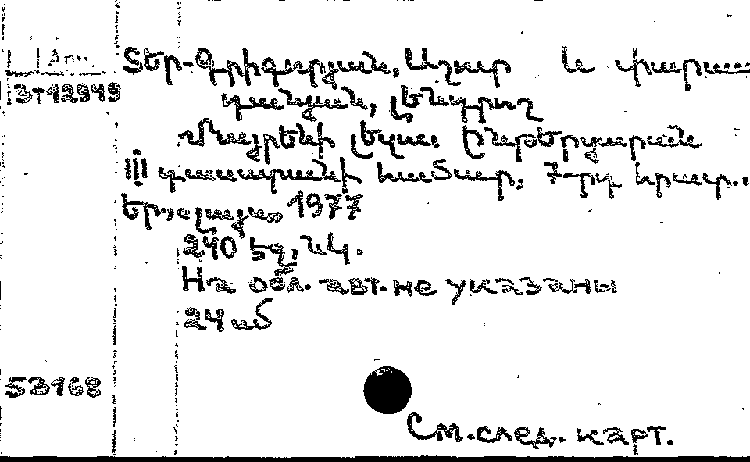 Տեր-Գրիգորյան, Աշոտ և փարաա
դանյան, Լենդրուշ
Մայրենի լեզու. Ընթերցարան
III դասարանի համար. 7-րդ հրատ..
Եր., «Լույս», 1977
240 էջ, նկ.
На обл. авт. не указаны
24 սմ
53168
См. след. карт.